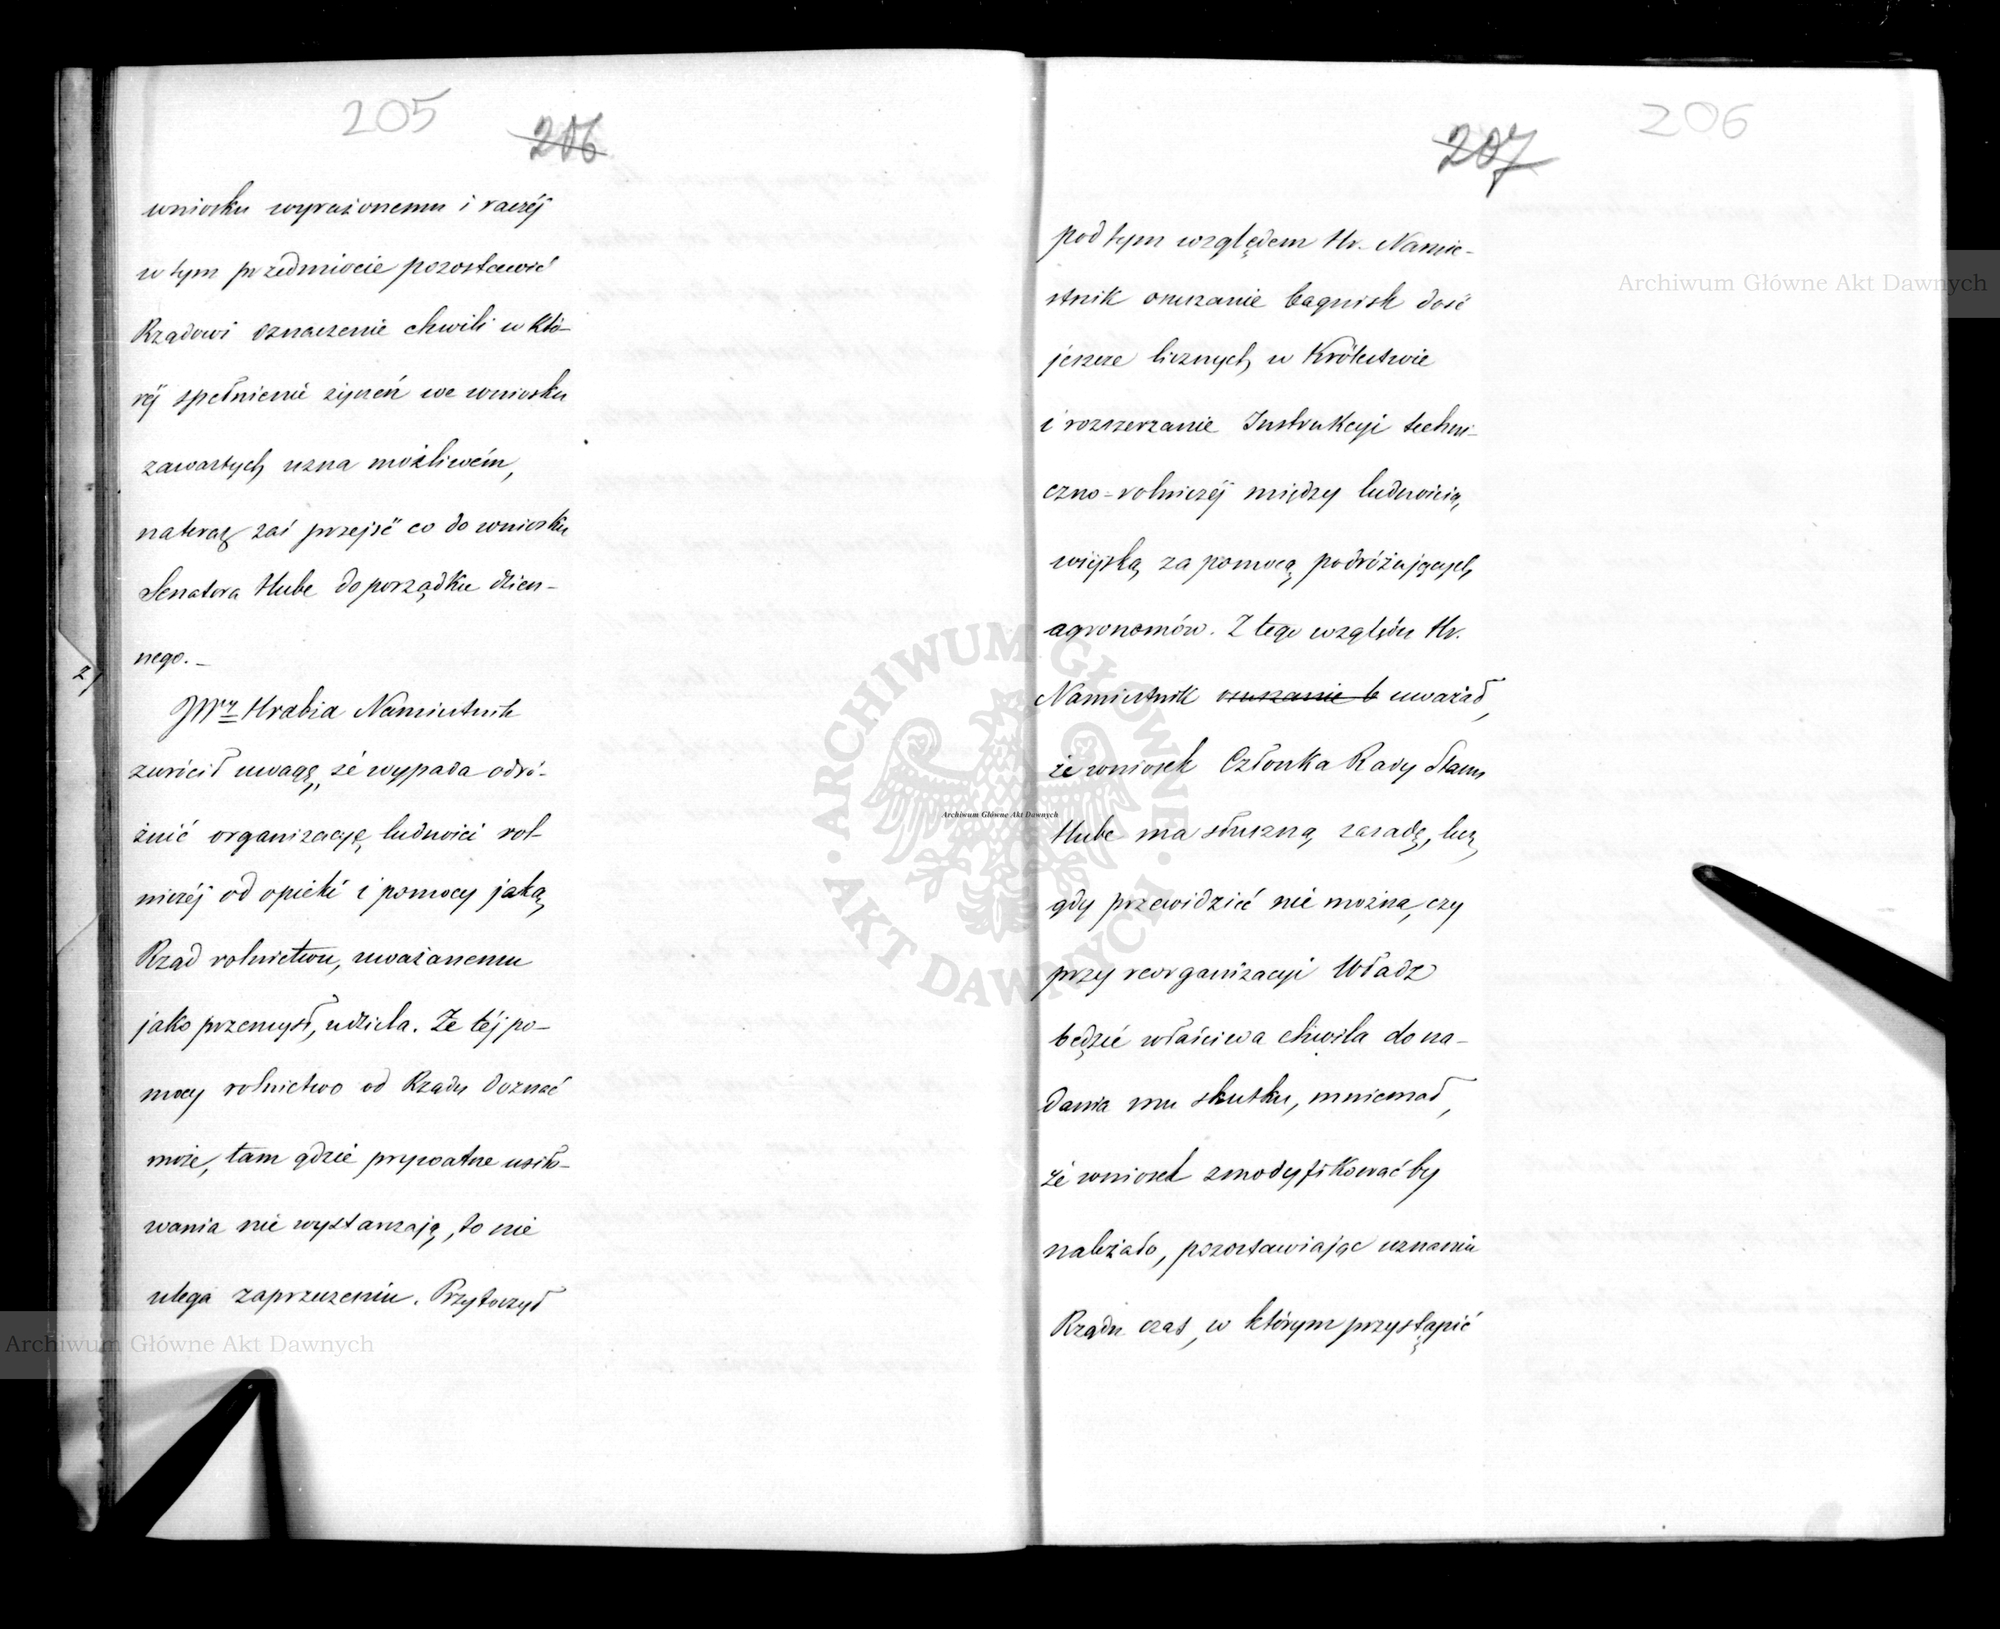 205
206
wniosku wyrażonemu i raczéj
w tym przedmiocie pozostawić
Rządowi oznaczenie chwili w któ-
réj spełnienie życzeń we wniosku
zawartych uzna możliwém,
nateraz zaś przejść co do wniosku
Senatora Hube do porządku dzien-
nego. _
2/
JWny Hrabia Namiestnik
zwrócił uwagę, że wypada odró-
żnić organizacyę ludności rol-
niczéj od opieki i pomocy jaką
Rząd rolnictwu, uważanemu
jako przemysł, udziela. Że téj po-
mocy rolnictwo od Rządu doznać
może, tam gdzie prywatne usiło-
wania nie wystarczają, to nie
ulega zaprzeczeniu. Przytoczył
206
207
pod tym względem Hr. Namie-
stnik osuszanie bagnisk dość
jeszcze licznych w Królestwie
i rozszerzanie Instrukcyi techni-
czno-rolniczéj między ludnością
wiejską za pomocą podróżujących
agronomów. Z tego względu Hr.
Namiestnik osuszanie b uważał,
że wniosek Członka Rady Stanu
Hube ma słuszną zasadę, lecz
gdy przewidzieć nie można, czy
przy reorganizacyi Władz
będzie właściwa chwila do na-
dania mu skutku, mniemał,
że wniosek zmodyfikować by
należało, pozostawiając uznaniu
Rządu czas, w którym przystąpić
Archiwum Główne Akt Dawnych
Archiwum Główne Akt Dawnych
Archiwum Główne Akt Dawnych
ARCHIWUM GŁÓWNE · AKT DAWNYCH ·